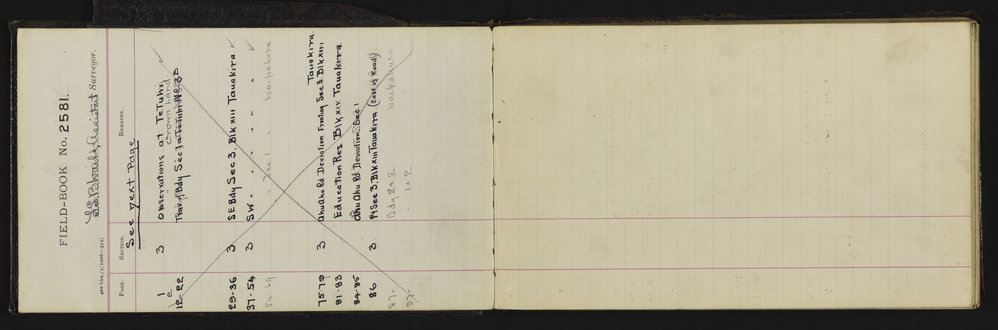 FIELD-BOOK No. 2581.
Surveyor.
400 bks./1/1906—924]
PAGE. SECTION. REMARKS.
See next Page
1 3 Observations at Te Tuhi ✓
2 Crown Land
12-22 Trav of Bdy Sec 1a Te Tuhi No 3D
29-36 3 SE Bdy Sec 3. Blk XIII Tauakira ✓
37-54 3 SW " " " " " ✓
Sec 1 Waipakura
Tauakira
75-79 3 Ahu Ahu Rd Deviation Fronting Sec 3. Blk XIII
81-83 Education Res. Blk XIX Tauakira
84-85 Ahu Ahu Rd Deviation Sec 1
86 3 Pt Sec 3. Blk XIII Tauakira (East of Road)
87- Bdy 2 & 2 Waipakura
97- " 1 & 2